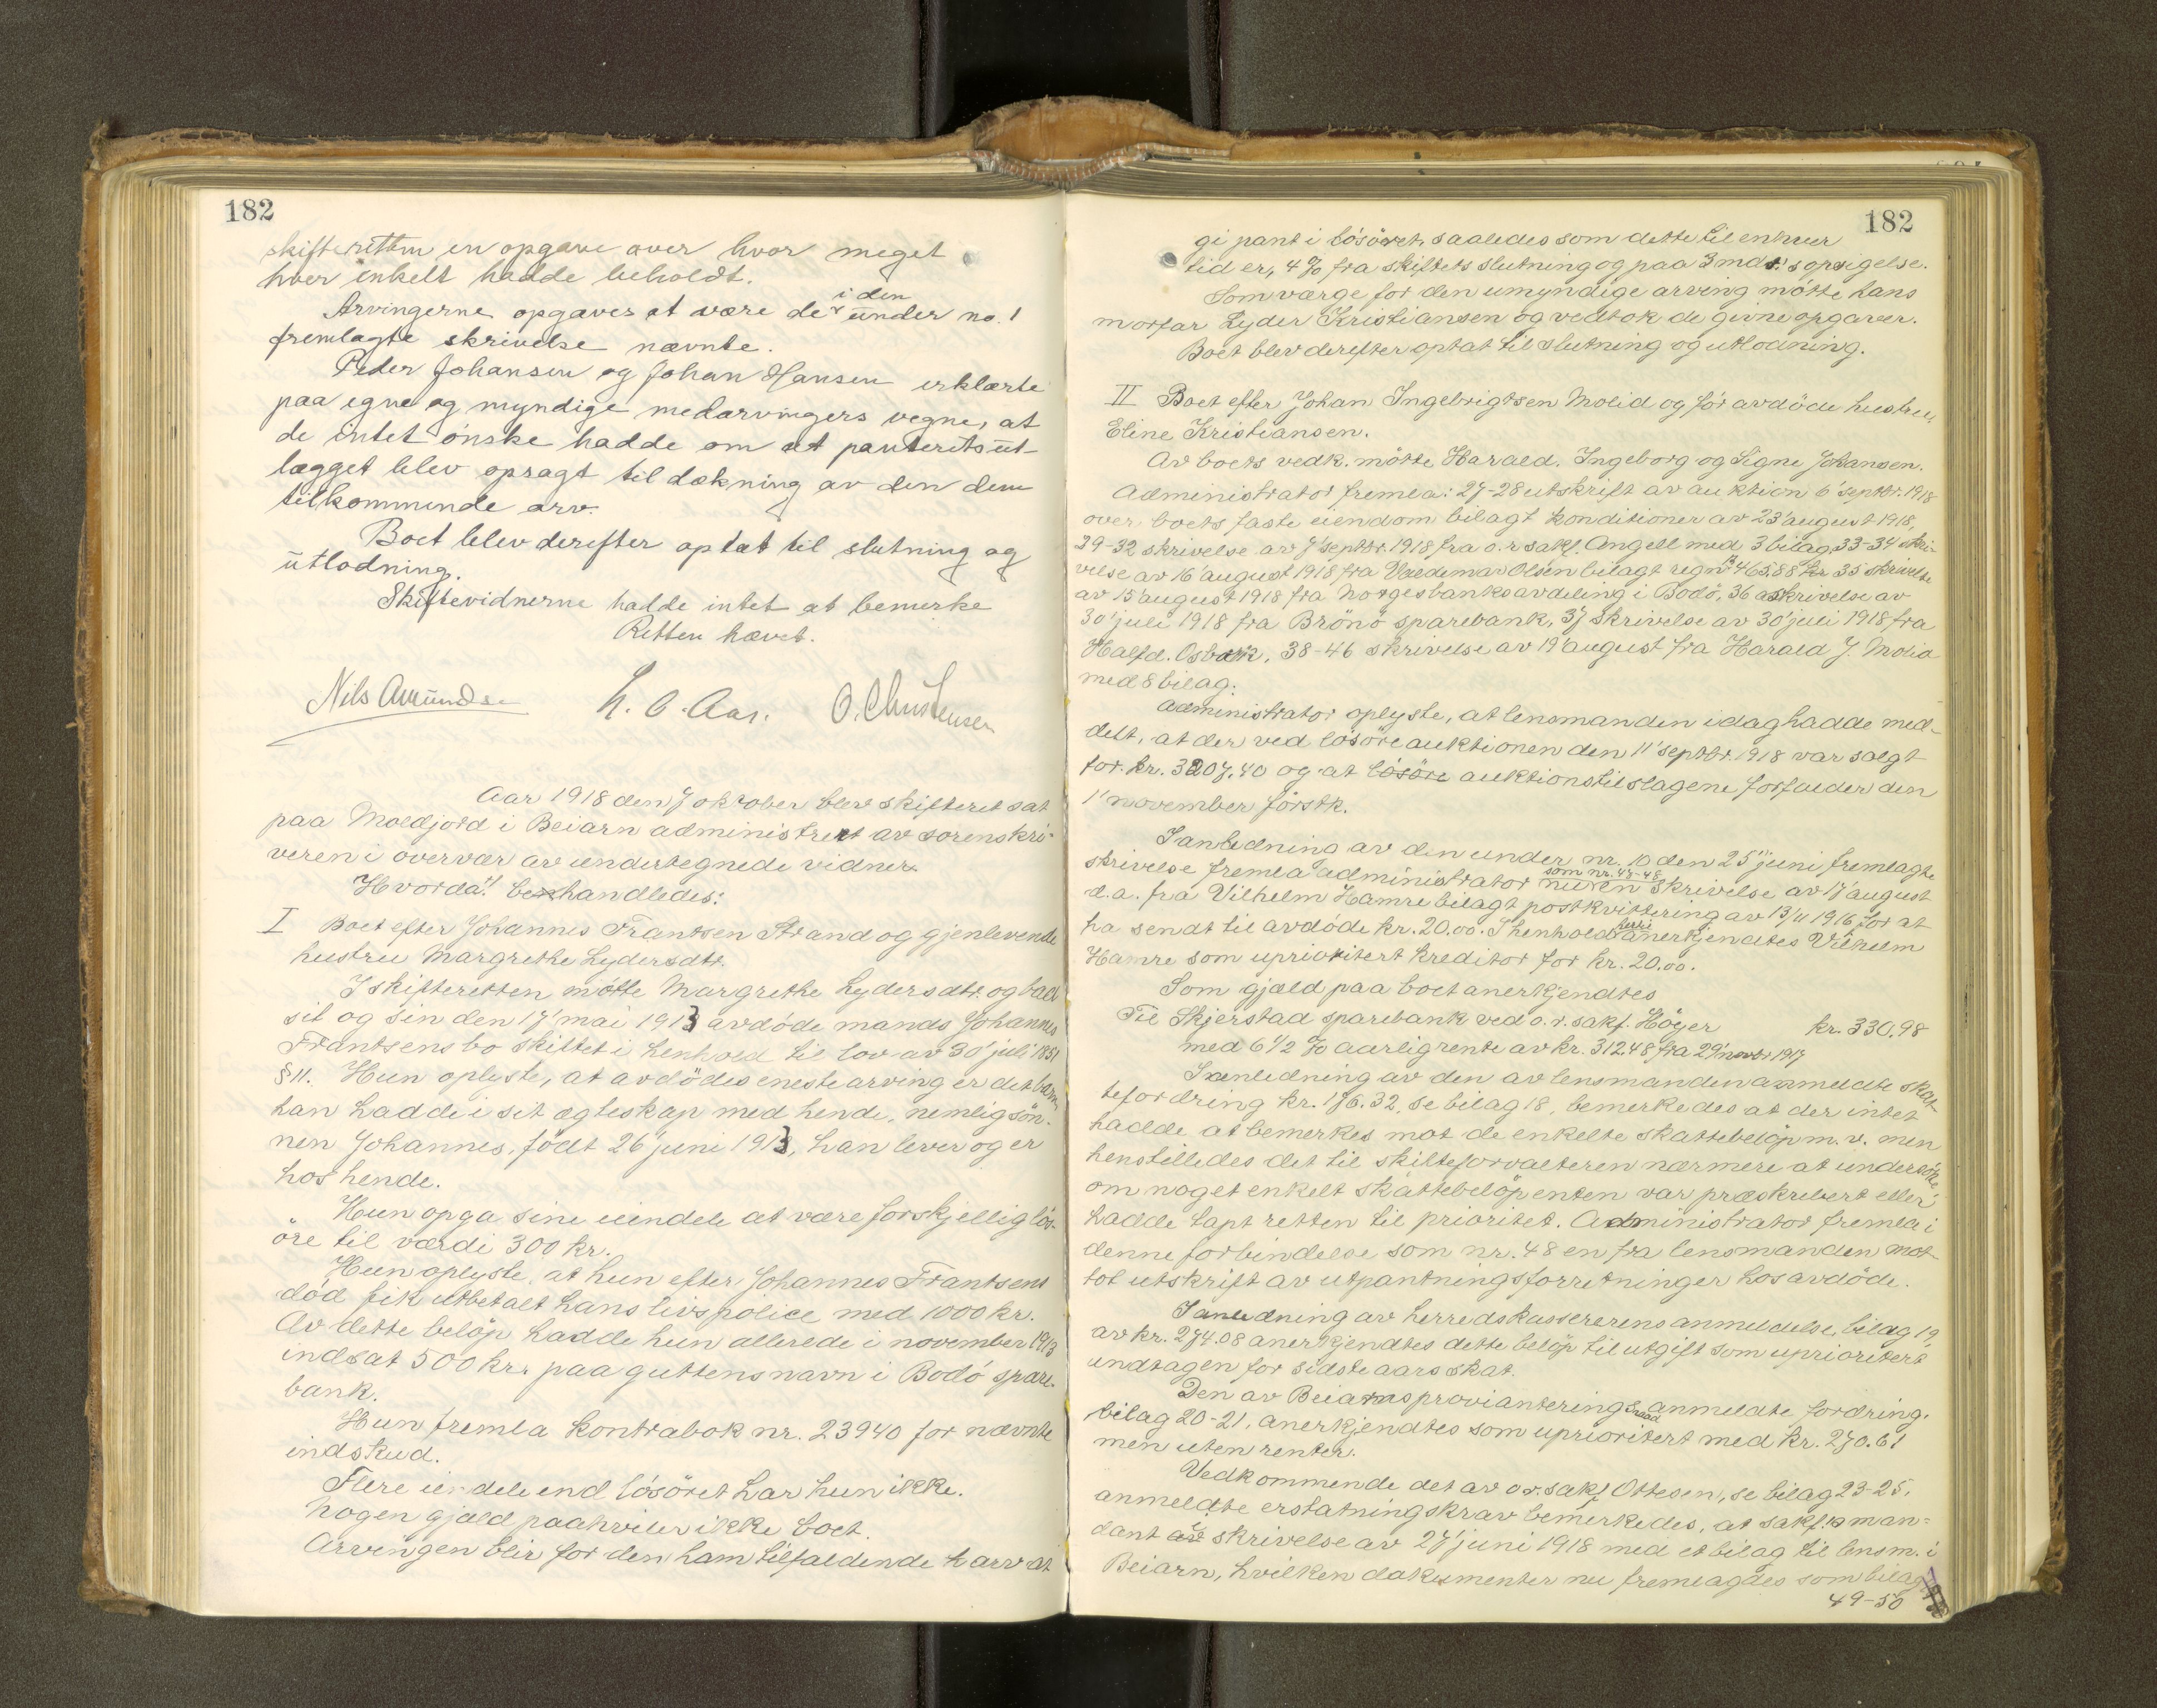 182
skifteretten en opgave over hvor meget
hver enkelt hadde beholdt.
Arvingerne opgaves at være de i den under no. 1
fremlagte skrivelse nævnte.
Peder Johansen og Johan Hansen erklærte
paa egne og myndige medarvingers vegne, at
de intet ønske hadde om at panterets ut-
lægget blev opsagt til dækning av den dem
tilkommende arv.
Boet blev derefter optat til slutning og
utlodning.
Skiftevidnerne hadde intet at bemerke
Retten hævet.
Nils Amunds H. O. Aas. O. Christensen
Aar 1918 den 7 oktober blev skifteret sat
paa Moldjord i Beiarn administrert av sorenskri-
veren i overvær av undertegnede vidner.
Hvorda: behandledes:
I Boet efter Johannes Frantsen Strand og gjenlevende
hustru Margrethe Lydersdtr.
I skifteretten møtte Margrethe Lydersdtr. og bad
sit og sin den 17' mai 1913 avdöde mands Johannes
Frantsens bo skiftet i henhold til lov av 30' juli 1851
§ 11. Hun oplyste, at avdödes eneste arving er det barn
han hadde i sit ægteskap med hende, nemlig sön-
nen Johannes, födt 26' juni 1913, han lever og er
hos hende.
Hun opga sine eiendele at være forskjellig lös-
öre til værdi 300 kr.
Hun oplyste, at hun efter Johannes Frantsens
död fik utbetalt hans livspolice med 1000 kr.
Av dette belöp hadde hun allerede i november 1913
indsat 500 kr. paa guttens navn i Bodö spare-
bank.
Hun fremla kontrabok nr. 23940 for nævnte
indskud.
Flere eiendele end lösöret har hun ikke.
Nogen gjæld paahviler ikke boet.
Arvingen blir for den ham tilfaldende arv at
182
gi pant i lösöret, saaledes som dette til enhver
tid er, 4 % fra skiftets slutning og paa 3 mdr's opsigelse.
Som værge for den umyndige arving mötte hans
morfar Lyder Kristiansen og vedtok de givne opgaver.
Boet blev derefter optat til slutning og utlodning.
II Boet efter Johan Ingebrigtsen Molid og för avdöde hustru
Eline Kristiansen.
Av boets vedk. mötte Harald, Ingeborg og Signe Johansen.
Administrator fremla: 27-28 utskrift av auktion 6' septbr. 1918
over boets faste eiendom bilagt konditioner av 23' august 1918,
29-32 skrivelse av 7' septbr. 1918 fra o.r.sakf. Angell med 3 bilag, 33-34 skri-
velse av 16' august 1918 fra Valdemar Olsen bilagt regn. 465.88 kr. 35 skrivelse
av 15' august 1918 fra Norges banks avdeling i Bodö, 36 skrivelse av
30' juli 1918 fra Brönö sparebank, 37 skrivelse av 30' juli 1918 fra
Halfd. Osbak, 38-46 skrivelse av 19' august fra Harald J. Molid
med 8 bilag.
Administrator oplyste, at lensmanden idag hadde med-
delt, at der ved lösöreauktionen den 11' septbr. 1918 var solgt
for kr. 3207.40 og at lösöre auktionstilslagene forfalder den
11' november förstk.
I anledning av den under nr. 10 den 25' juni fremlagte
skrivelse fremla administrator som nr. 47-48 nu en skrivelse av 17' august
d.a. fra Vilhelm Hamre bilagt postkvittering av 13/11 1916 for at
ha sendt til avdöde kr. 20.00. I henhold hertil anerkjendtes Vilhelm
Hamre som uprioritert kreditor for kr. 20.00.
Som gjæld paa boet anerkjendtes
Til Skjerstad sparebank ved o.r.sakf. Höyer kr. 330,98
med 6 1/2 % aarlig rente av kr. 312.48 fra 29' novbr 1917
I anledning av den av lensmanden anmeldte skat-
tefordring kr. 176.32, se bilag 18, bemerkedes at der intet
hadde at bemerkes mot de enkelte skattebelöp m.v. men
henstilledes det til skifteforvalteren nærmere at undersöke
om noget enkelt skattebelöp enten var præskribert eller
hadde tapt retten til prioritet. Administrator fremla i
denne forbindelse som nr. 48 en fra lensmanden mot-
tat utskrift av utpantningsforretninger hos avdöde.
I anledning av herredskassererens anmeldelse, bilag 19,
av kr. 274.08 anerkjendtes dette belöp til utgift som uprioritert
undtagen for sidste aars skat.
Den av Beiarns provianteringsraad anmeldte fordring,
bilag 20-21, anerkjendtes som uprioritert med kr. 270.61
men uten renter.
Vedkommende det av o.r.sakf. Ottesen, se bilag 23-25,
anmeldte erstatningskrav bemerkedes, at sakf.s man-
dant i skrivelse av 27' juni 1918 med et bilag til lensm. i
Beiarn, hvilken dokumenter nu fremlagdes som bilag
49-50